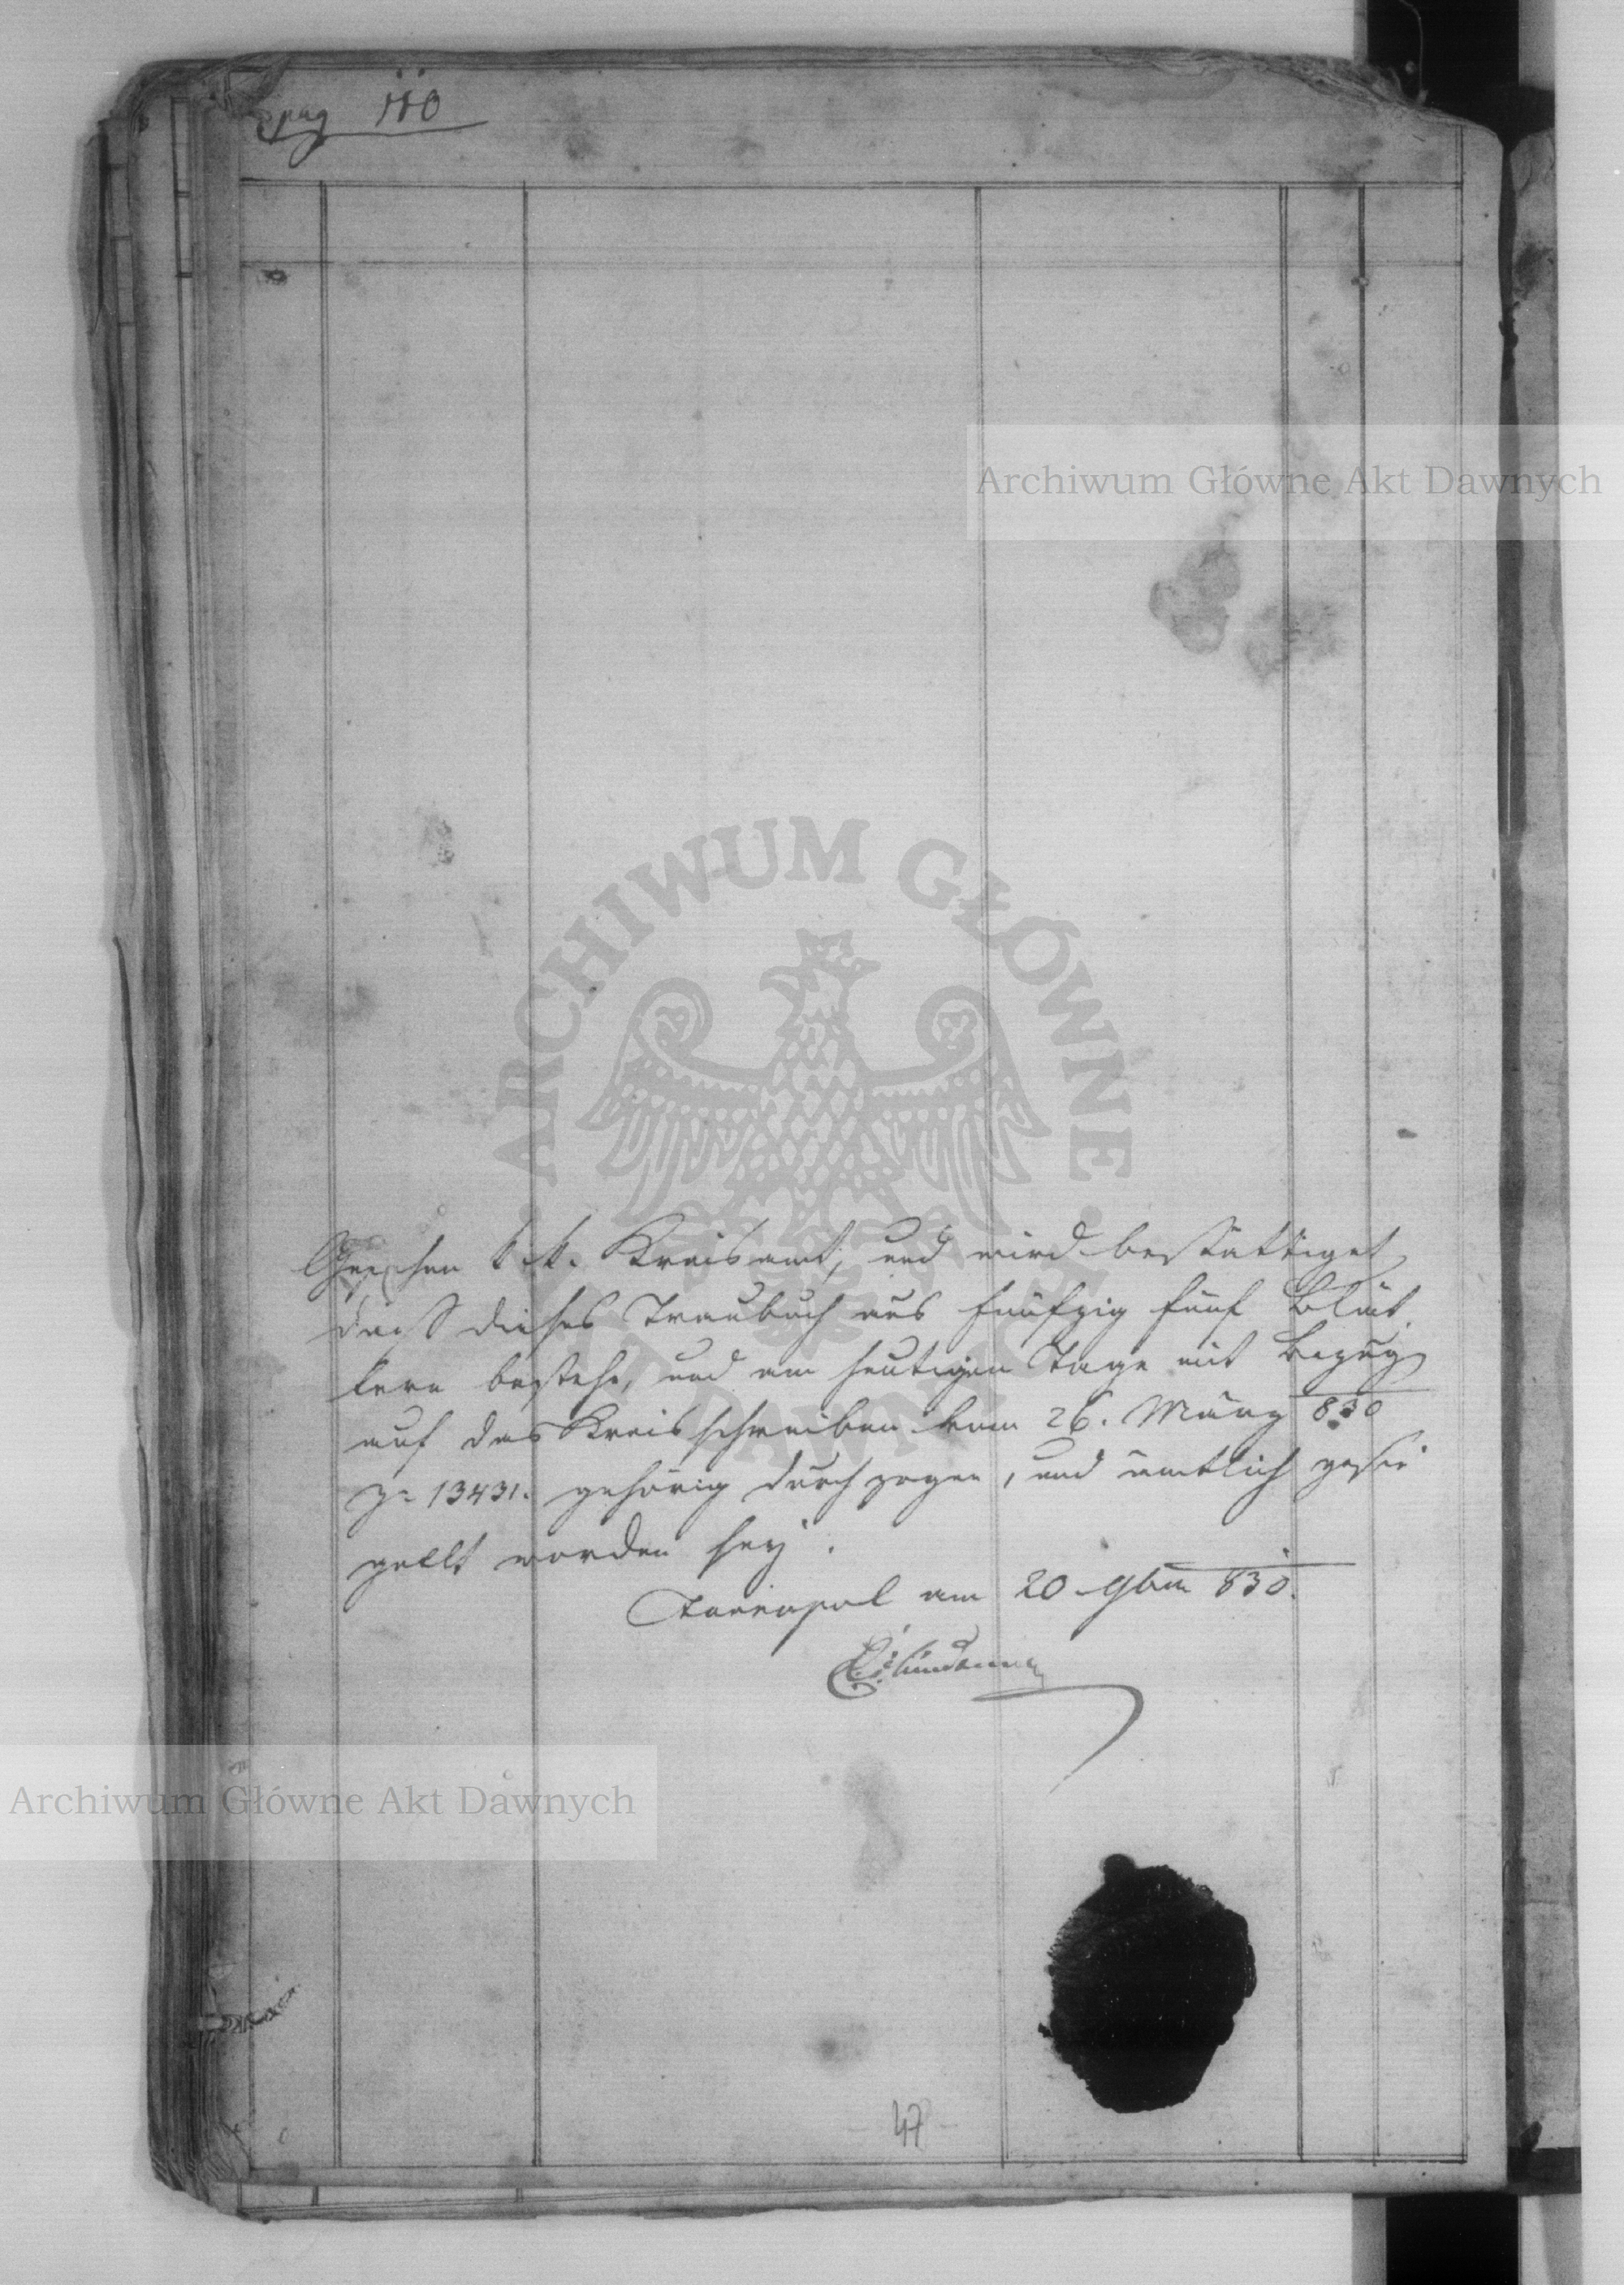 pag 110
Archiwum Główne Akt Dawnych
ARCHIWUM GŁÓWNE AKT DAWNYCH
Gesehen k. k. Kreisamt, und wird bestättiget,
daß dieses Traubuch aus fünfzig fünf Blät-
tern bestehe, und am heutigen Tage mit Bezug
auf das Kreisschreiben vom 26. März 830
Z. 13431. gehörig durchzogen, und ämtlich gesie
gelt worden sey.
Tarnopol am 20 9ber 830.
Archiwum Główne Akt Dawnych
47